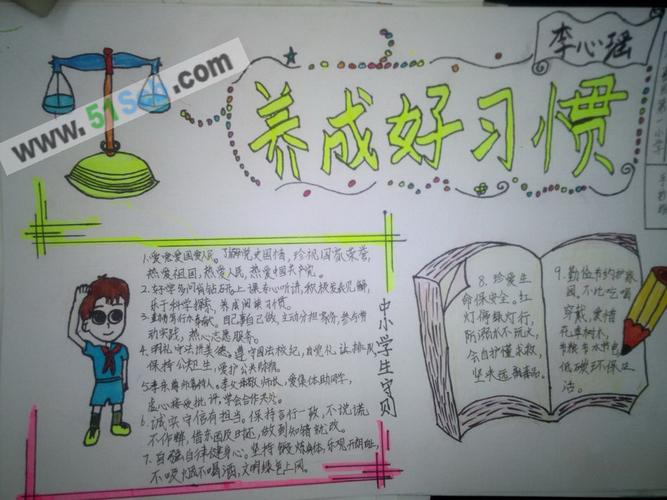 李心瑶
养成好习惯
www.51s
.com
中小学生守则
1.爱党爱国爱人民。了解党史国情,珍视国家荣誉,
热爱祖国,热爱人民,热爱中国共产党。
2.好学多问肯钻研。上课专心听讲,积极发表见解,
乐于科学探索,养成阅读习惯。
3.
自己事自己做,主动分担家务,参与劳
动实践,热心志愿服务。
4.明礼守法讲美德。遵守国法校纪,自觉礼让排队,
保持公共卫生,爱护公共财物。
5.孝亲尊师善待人。孝父母敬师长,爱集体助同学,
虚心接受批评,学会合作共处。
6.诚实守信有担当。保持言行一致,不说谎
不作弊,借东西及时还,做到知错就改。
7.自强自律健身心。坚持锻炼身体,乐观开朗向上,
不吸烟不喝酒,文明绿色上网。
8.珍爱生
命保安全。红
灯停绿灯行,
防溺水不玩火,
会自护懂求救,
坚决远离毒品。
9.勤俭节约护家
园。不比吃喝
穿戴,爱惜
花草树木,
节粮节水节电,
低碳环保生
活。